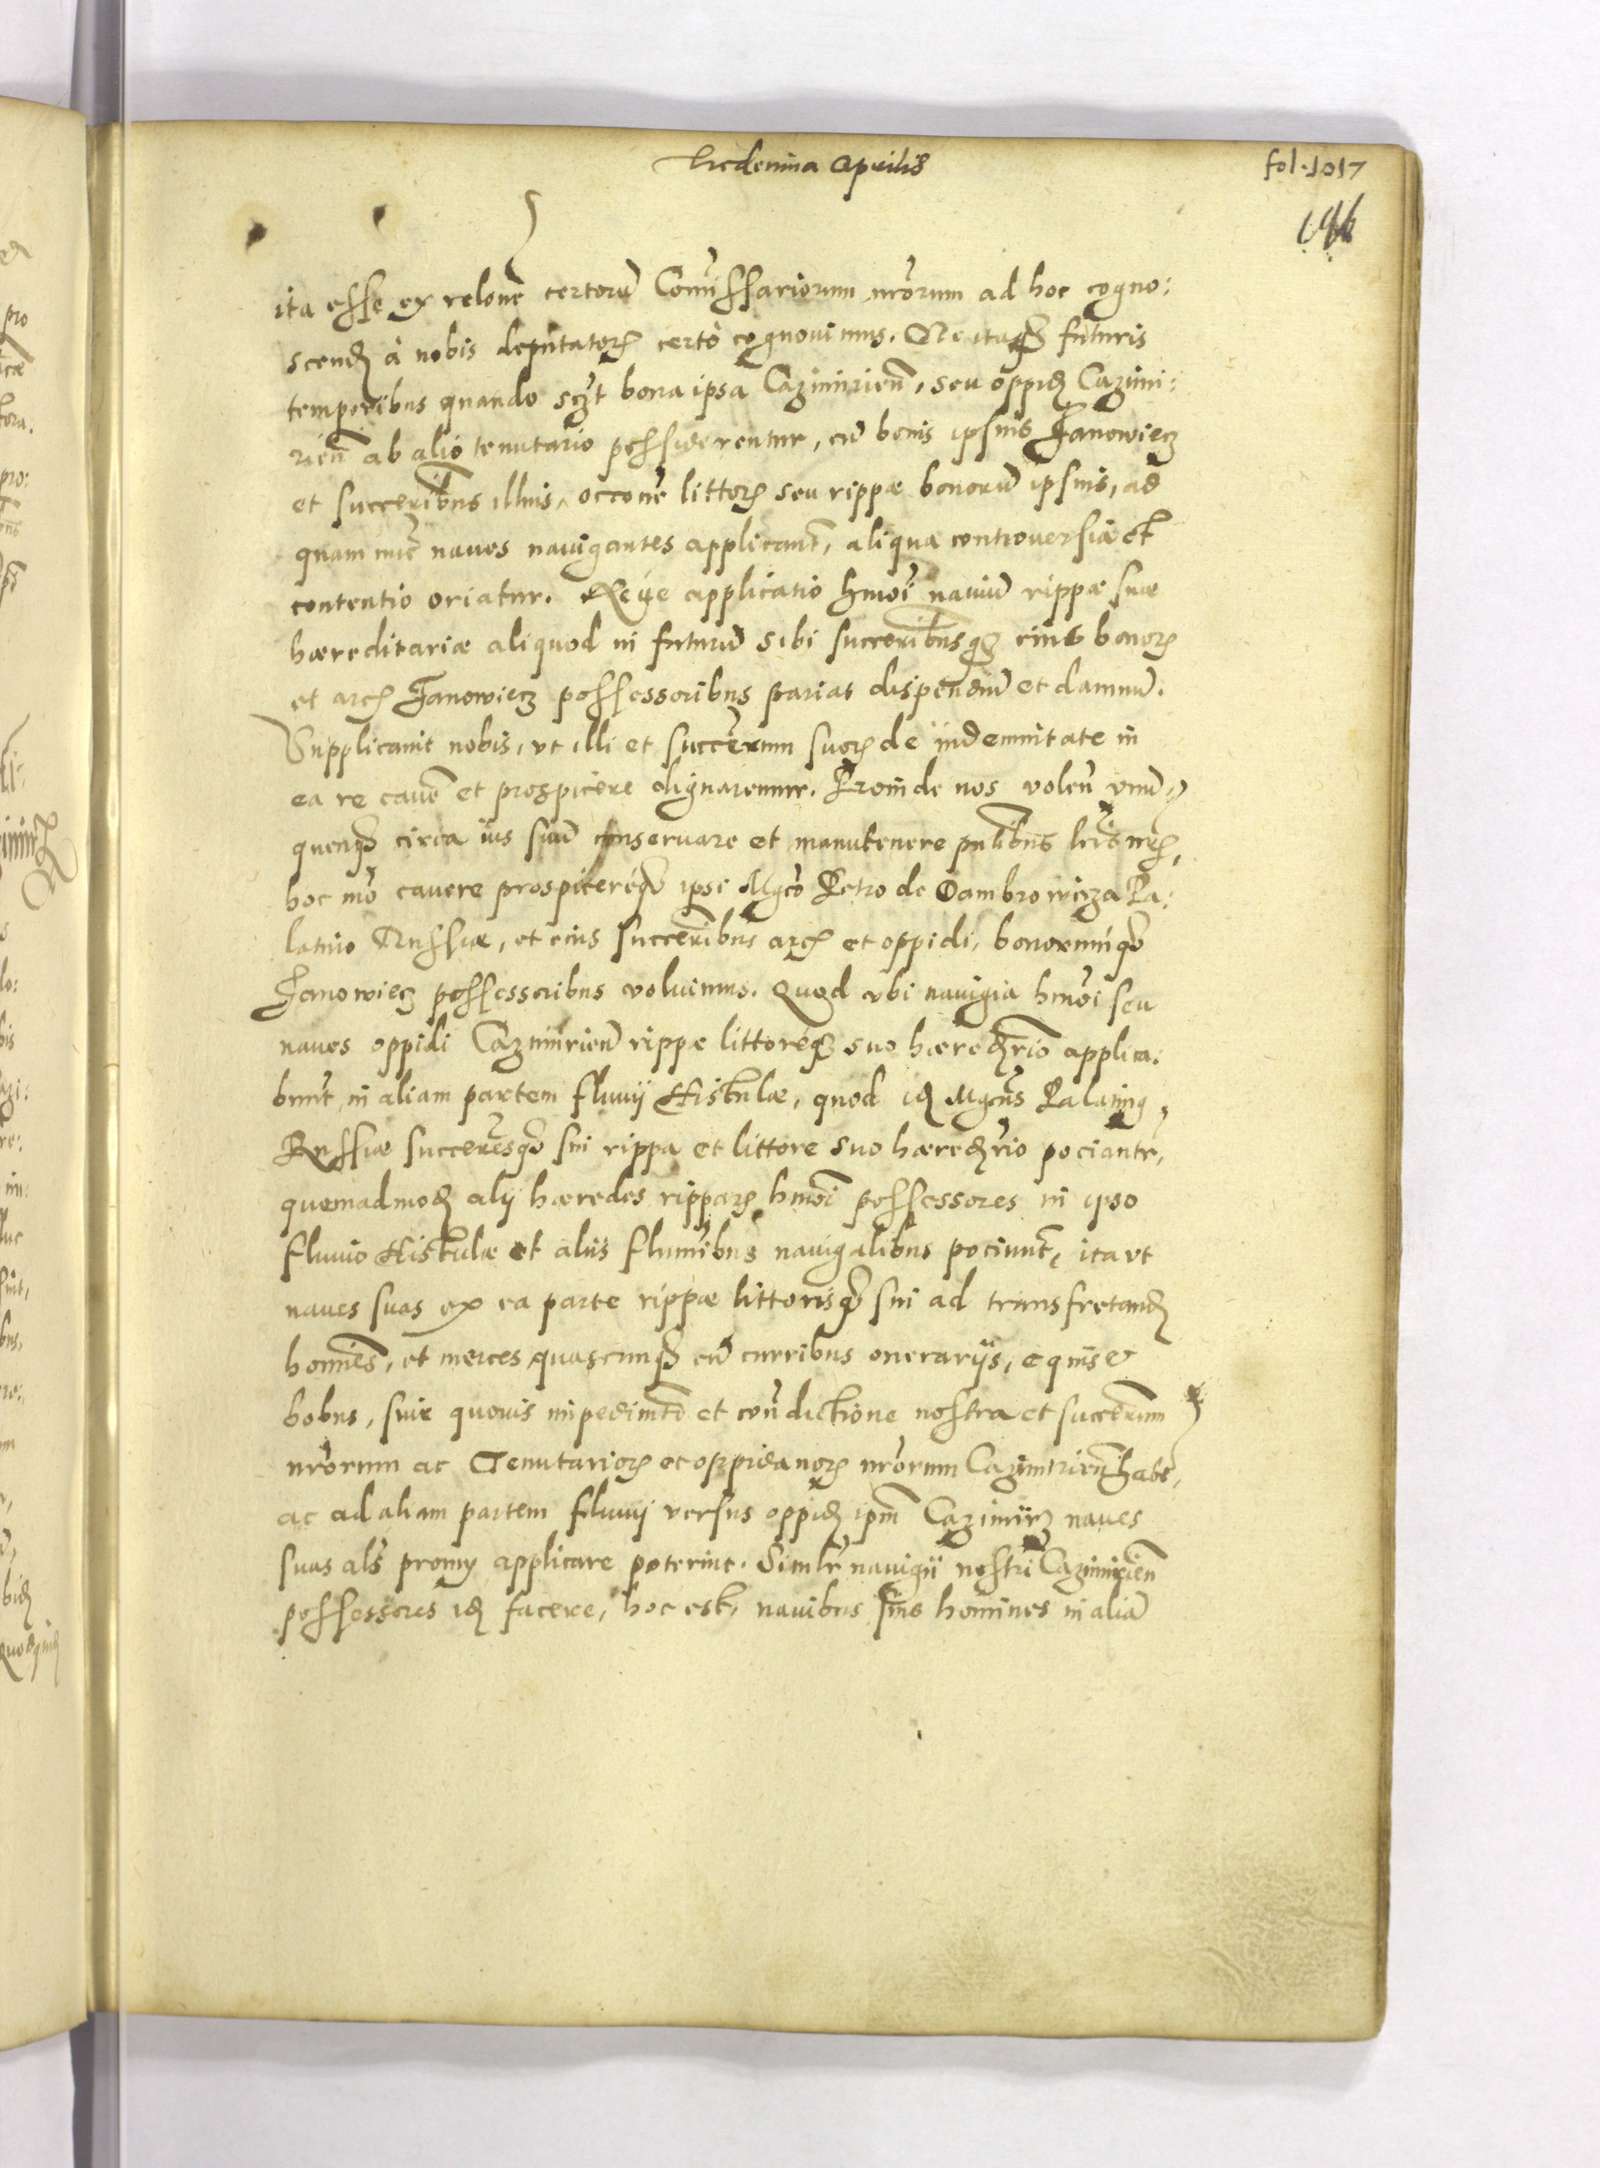 Aprilis
fol. 1017
196
ita esse ex relone certorũ Comissariorum nrorum ad hoc cogno:
scend à nobis deputator certò cognovimus. Ne itaq futuris
temporibus quando sczt bona ipsa Cazimirien, seu oppid Cazimi:
rien ab alio tenutario possiderentur, cũ bonis ipsius Janowiecz
et succeribus illius, occone littor seu rippæ bonorũ ipsius, ad
quam nũc naves navigantes applicant, aliqua controversia et
contentio oriatur. Neve applicatio hmoi naviũ rippæ suæ
hæreditariæ aliquod in futurũ sibi succeribusq eius bonor
et arcis Janowiecz possessoribus pariat dispendiũ et damnũ.
Supplicavit nobis, vt illi et succerum suor de indemnitate in
ea re cavē et prospicere dignaremur. Proinde nos volen vnũ
quenq circa ius suũ conservare et manutenere pntibus lris nris,
hoc mõ cavere prospicereq ipsi Mgco Petro de Dambrowicza Pa:
latino Russiæ, et eius succeribus arcis et oppidi, bonorumq
Janowiecz possessoribus voluimus. Quod vbi navigia hmoi seu
naves oppidi Cazimirien rippe littoreq suo hæredrio applica:
bunt in aliam partem fluvij Histulæ, quod id Mgcus Palatinus
Russiæ succeresq sui rippa et littore suo hæredrio pociantr,
quemadmod alij hæredes rippar hmoi possessores in ipso
fluvio Histulæ et aliis fluminibus navigalibus pociunt, ita vt
naves suas ex ea parte rippæ littorisq sui ad transfretand
homines, et merces quascunq cũ curribus onerarijs, equis &
bobus, sine quovis impedimto et condictione nostra et succerum
nrorum ac Tenutarior et oppidanor nrorum Cazimirien habe,
ac ad aliam partem fluvij versus oppid ipm Cazimirz naves
suas als promy applicare poterint. Simlr navigii nostri Cazimirien
possessores id facere, hoc est, navibus suis homines in aliã